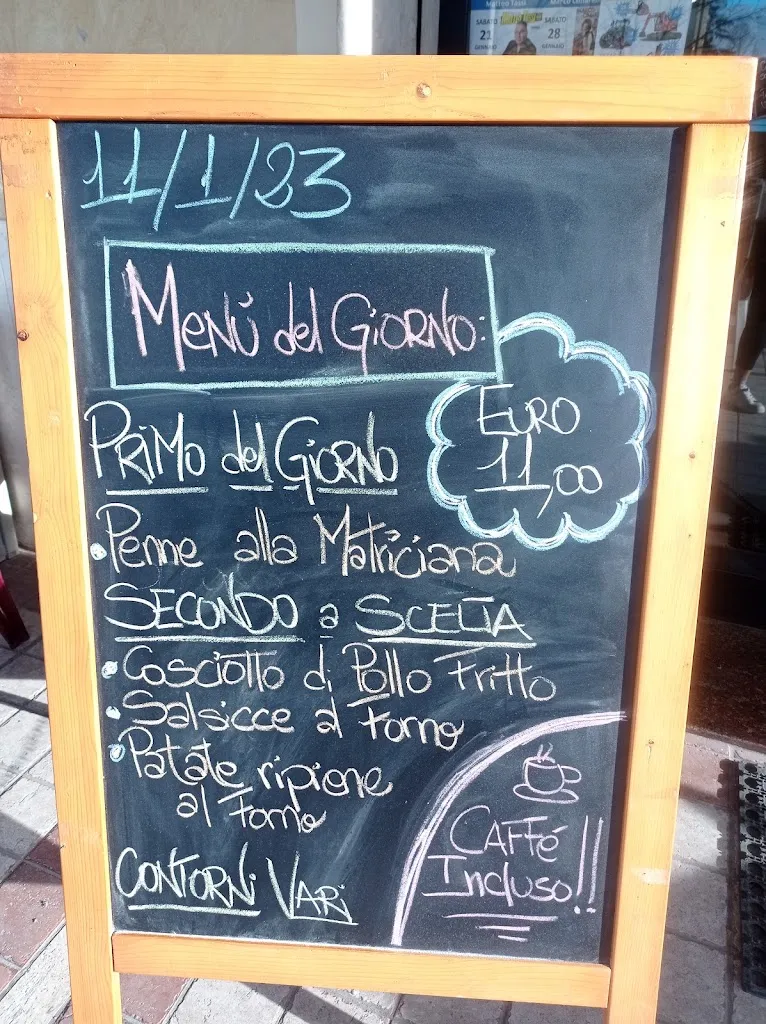 SABATO
21
GENNAIO
SABATO
28
GENNAIO
11/1/23
MENÚ del GIORNO:
EURO
11,00
PRIMO del GIORNO
Penne alla Matriciana
SECONDO a SCELTA
Cosciotto di Pollo Fritto
Salsicce al Forno
Patate ripiene
al Forno
CONTORNI VARI
CAFFÉ
Incluso!!